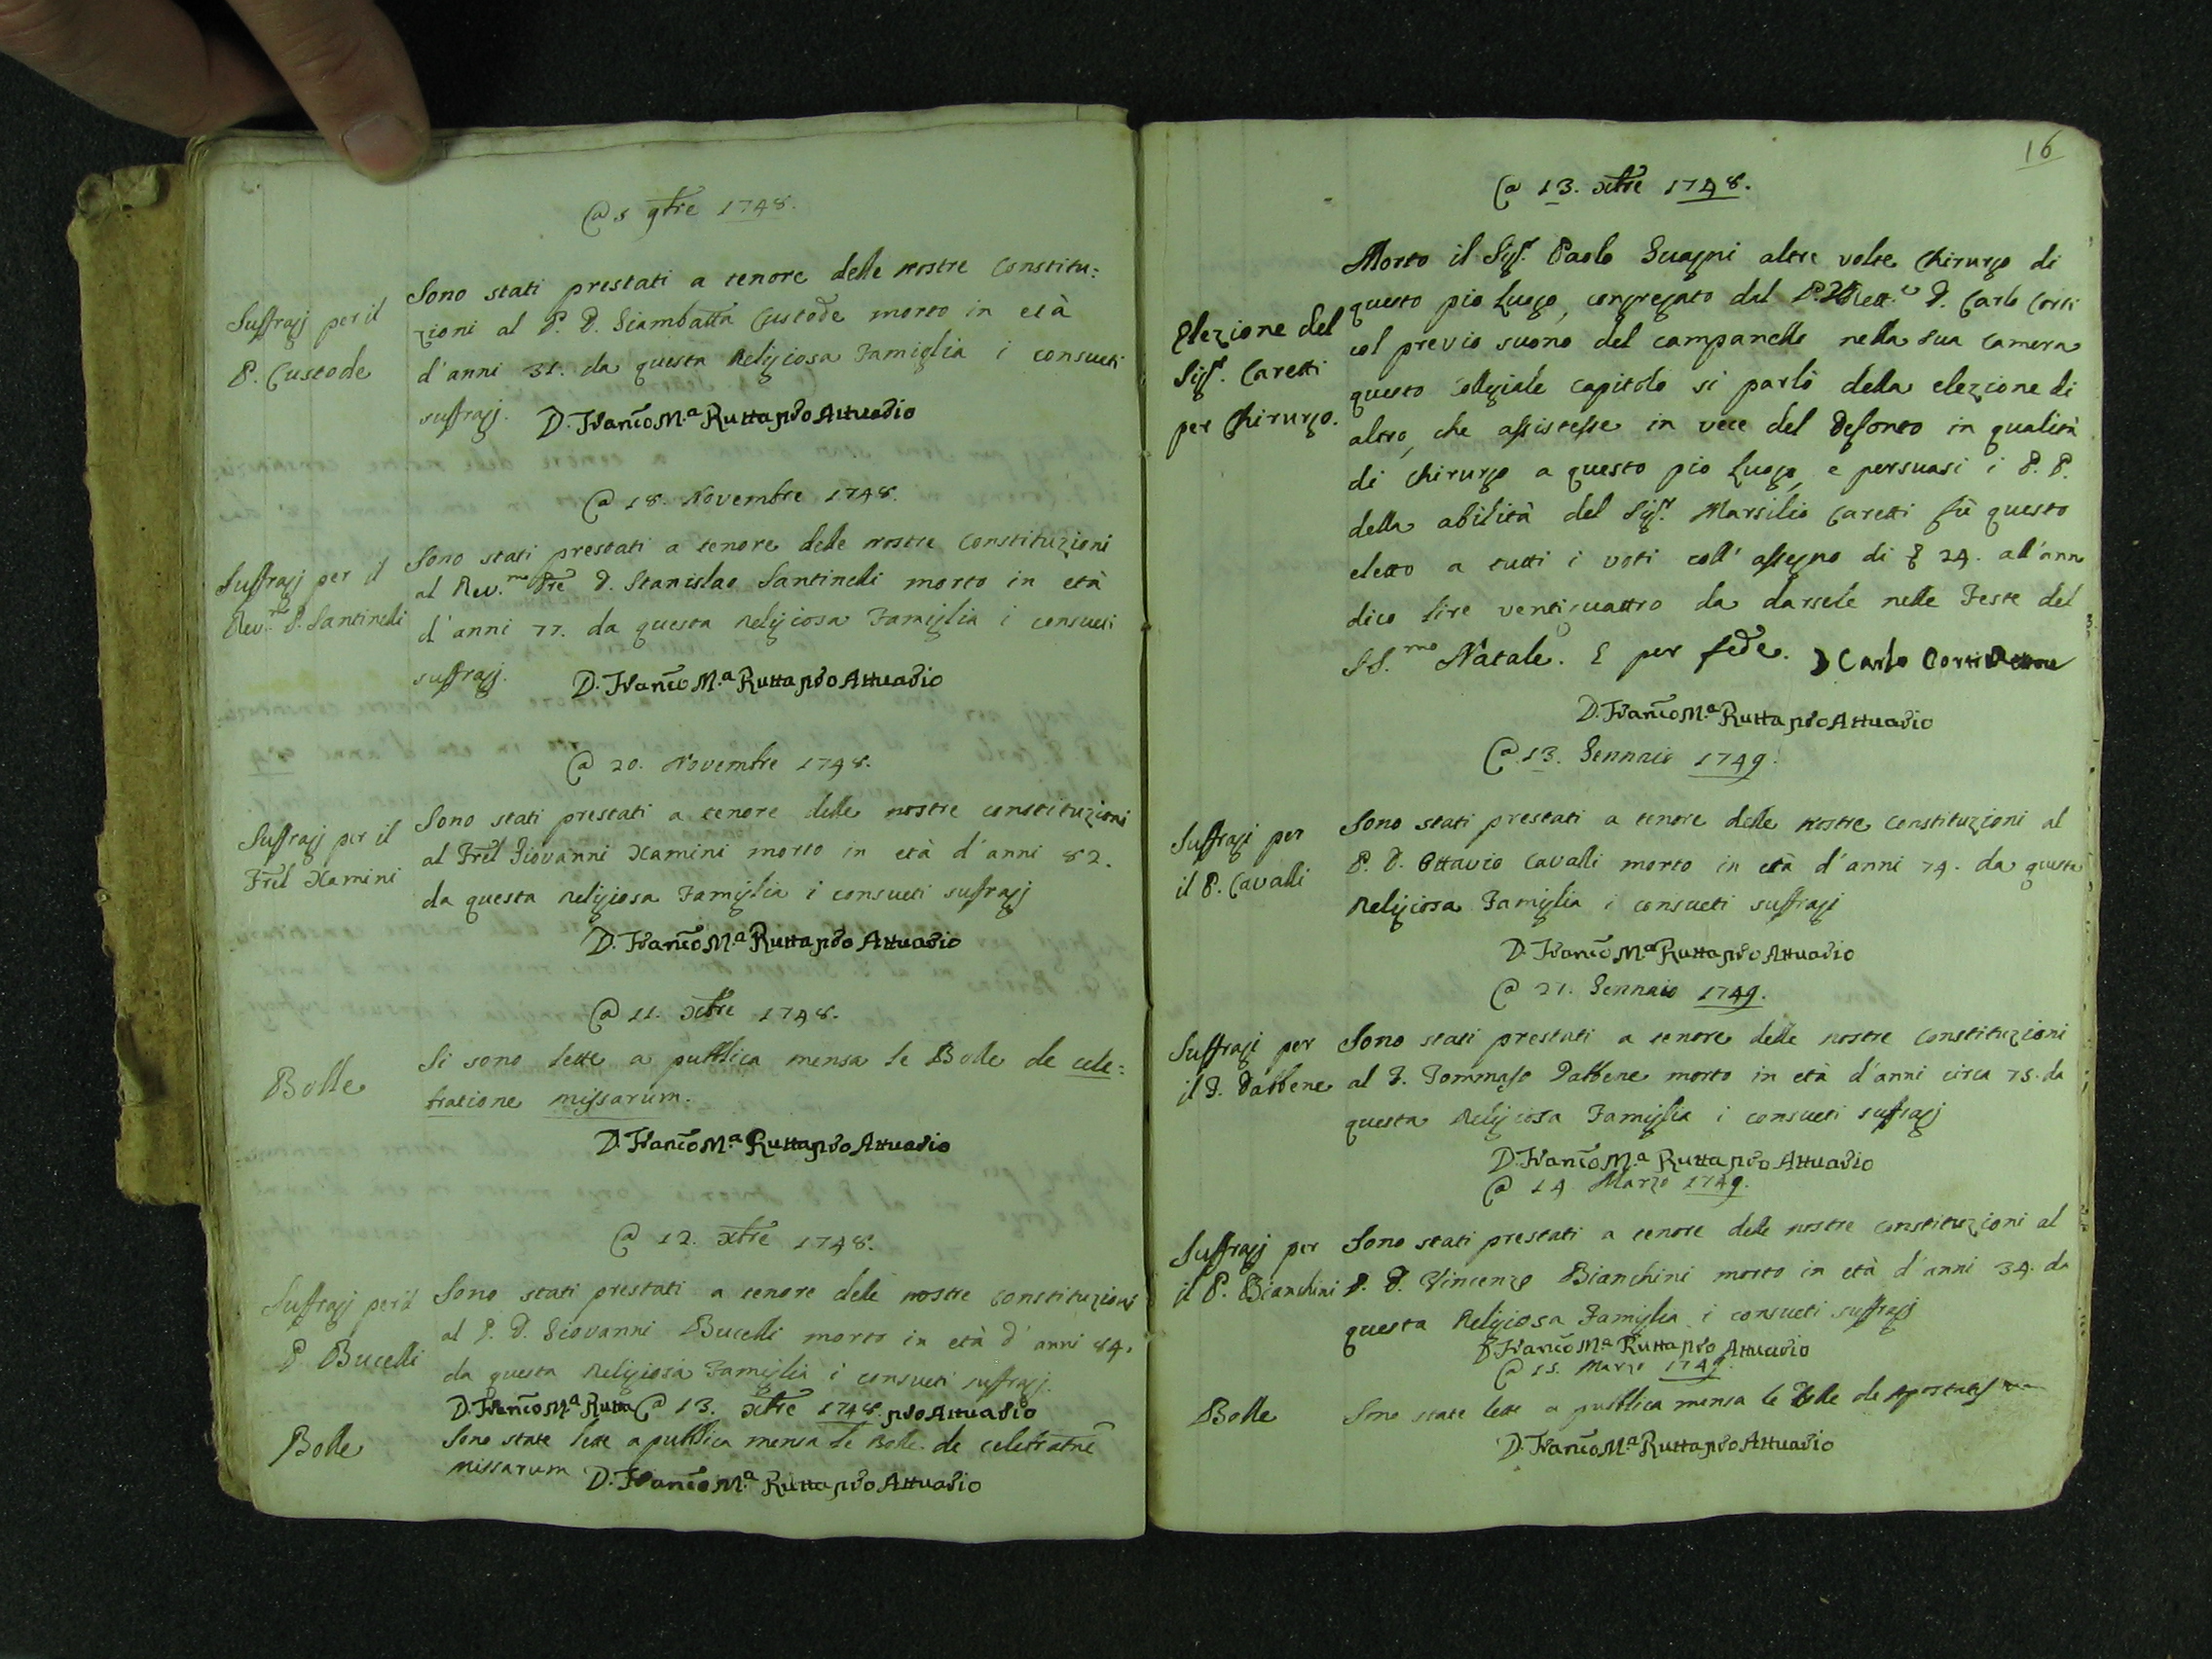 @ 5 9bre 1748.
Suffragj per il
P. Custode
Sono stati prestati a tenore delle nostre Constitu:
zioni al P. D. Giambatta Custode morto in età
d'anni 31. da questa Religiosa Famiglia i consueti
suffragj. D. Franco M.a Rutta pro Attuario
@ 18. Novembre 1748.
Suffragj per il
Rev.mo P. Santinelli
Sono stati prestati a tenore delle nostre Constituzioni
al Rev.mo Pre D. Stanislao Santinelli morto in età
d'anni 77. da questa Religiosa Famiglia i consueti
suffragj. D. Franco M.a Rutta pro Attuario
@ 20. Novembre 1748.
Suffragj per il
Frel Xamini
Sono stati prestati a tenore delle nostre constituzioni
al Frel Giovanni Xamini morto in età d'anni 82.
da questa Religiosa Famiglia i consueti suffragj
D. Franco M.a Rutta pro Attuario
@ 11. Xbre 1748.
Bolle
Si sono lette a pubblica mensa le Bolle de cele:
bratione missarum.
D. Franco M.a Rutta pro Attuario
@ 12. Xbre 1748.
Suffragj per il
P. Bucelli
Sono stati prestati a tenore delle nostre constituzioni
al P. D. Giovanni Bucelli morto in età d'anni 84.
da questa Religiosa Famiglia i consueti suffragj.
D. Franco M.a Rutta @ 13. Xbre 1748. pro Attuario
Bolle
Sono state lette a pubblica mensa le Bolle de celebratne
missarum D. Franco M.a Rutta pro Attuario
16
@ 13. Xbre 1748.
Elezione del
Sigr. Caretti
per Chirurgo.
Morto il Sigr. Paolo Guagni altre volte Chirurgo di
questo pio Luogo, congregato dal P. D. Carlo Corti
col previo suono del campanello nella sua Camera
questo Collegiale Capitolo si parlò della elezione di
altro, che assistesse in vece del Defonto in qualità
di Chirurgo a questo pio Luogo, e persuasi i P. P.
della abilità del Sigr. Marsilio Caretti fù questo
eletto a tutti i voti coll' assegno di £ 24. all'ann
dico lire ventiquattro da darsele nelle Feste del
SS.mo Natale. E per fede. D Carlo Corti Rettore
D. Franco M.a Rutta pro Attuario
@ 13. Gennaio 1749.
Suffragj per
il P. Cavalli
Sono stati prestati a tenore delle nostre constituzioni al
P. D. Ottavio Cavalli morto in età d'anni 74. da questa
Religiosa Famiglia i consueti suffragj
D. Franco M.a Rutta pro Attuario
@ 21. Gennaio 1749.
Suffragj per
il F. Dabbene
Sono stati prestati a tenore delle nostre Constituzioni
al F. Tommaso Dabbene morto in età d'anni circa 75. da
questa Religiosa Famiglia i consueti suffragj
D. Franco M.a Rutta pro Attuario
@ 14 Marzo 1749.
Suffragj per
il P. Bianchini
Sono stati prestati a tenore delle nostre constituzioni al
P. D. Vincenzo Bianchini morto in età d'anni 34. da
questa Religiosa Famiglia i consueti suffragj
D. Franco M.a Rutta pro Attuario
@ 15. Marzo 1749.
Bolle
Sono state lette a pubblica mensa le Bolle de Apostatis
D. Franco M.a Rutta pro Attuario